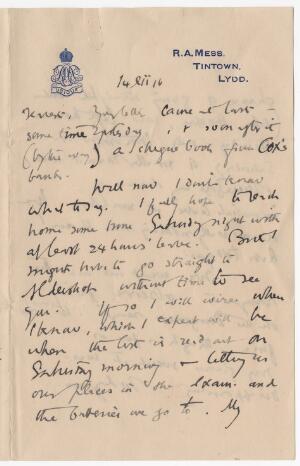 R.A. MESS.
TINTOWN,
LYDD.
14 XII 16
Dearest, Your letter came at last –
some time yesterday, & soon after it
(by the way) a cheque book from Cox's
bank.
Well now I don't know
what to say. I fully hope to reach
home some time Saturday night with
at least 24 hours' leave. But I
might have to go straight to
Aldershot without time to see
you. If so I will wire when
I know, which I expect will be
when the list is read out on
Saturday morning – telling us
our places in the exam. and
the batteries we go to. My